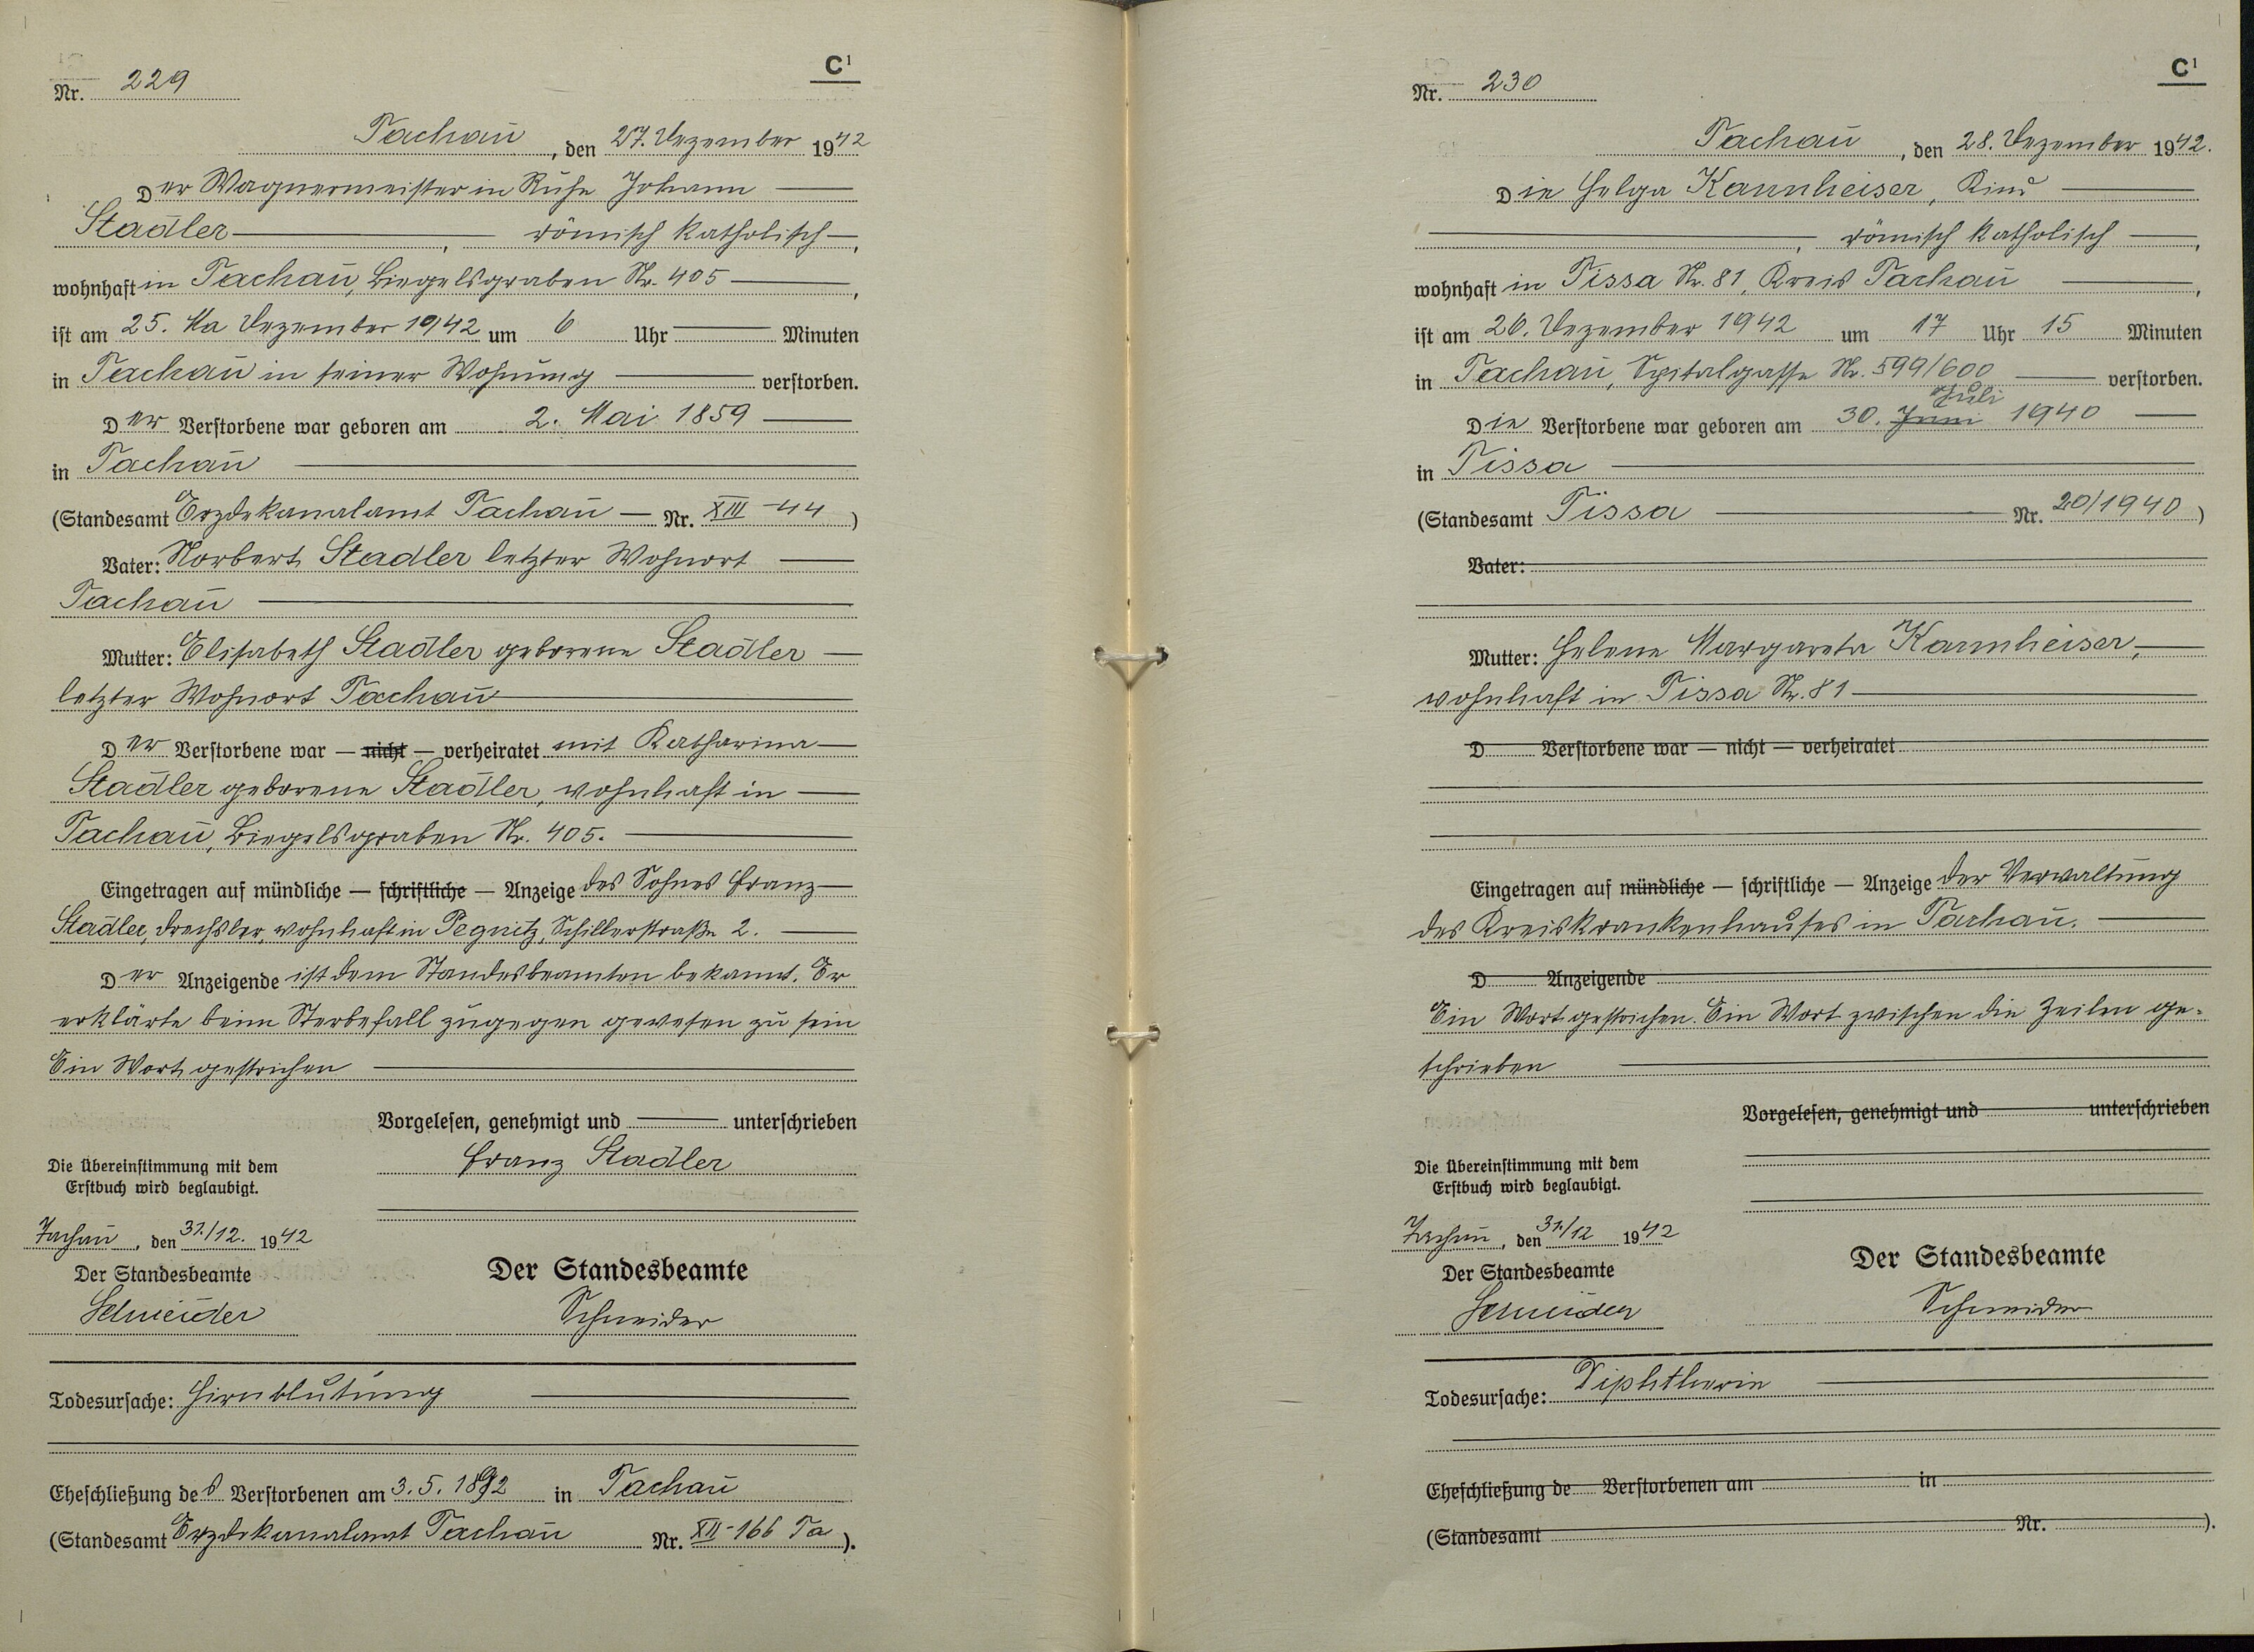 C¹
Nr. 229
Tachau, den 27. Dezember 1942
Der Wagnermeister in Ruhe Johann
Stadler, römisch katholisch,
wohnhaft in Tachau, Biegelsgraben Nr. 405,
ist am 25. Ma Dezember 1942 um 6 Uhr Minuten
in Tachau in seiner Wohnung verstorben.
Der Verstorbene war geboren am 2. Mai 1859
in Tachau
(Standesamt Erzdekanalamt Tachau Nr. XIII-44)
Vater: Norbert Stadler letzter Wohnort
Tachau
Mutter: Elisabeth Stadler geborene Stadler
letzter Wohnort Tachau
Der Verstorbene war — nicht — verheiratet mit Katharina
Stadler geborene Stadler, wohnhaft in
Tachau, Biegelsgraben Nr. 405.
Eingetragen auf mündliche — schriftliche — Anzeige des Sohnes Franz
Stadler, Drechsler, wohnhaft in Pegnitz, Schillerstraße 2.
Der Anzeigende ist dem Standesbeamten bekannt. Er
erklärte beim Sterbefall zugegen gewesen zu sein
Ein Wort gestrichen
Vorgelesen, genehmigt und unterschrieben
Franz Stadler
Die Übereinstimmung mit dem
Erstbuch wird beglaubigt.
Tachau, den 31./12. 1942
Der Standesbeamte
Schneider
Der Standesbeamte
Schneider
Todesursache: Hirnblutung
Eheschließung des Verstorbenen am 3.5.1892 in Tachau
(Standesamt Erzdekanalamt Tachau Nr. XII-166 Ta).
C¹
Nr. 230
Tachau, den 28. Dezember 1942.
Die Helga Kannheiser, Kind
, römisch katholisch,
wohnhaft in Tissa Nr. 81, Kreis Tachau,
ist am 26. Dezember 1942 um 17 Uhr 15 Minuten
in Tachau, Spitalgasse Nr. 599/600 verstorben.
Juli
Die Verstorbene war geboren am 30. Juni 1940
in Tissa
(Standesamt Tissa Nr. 20/1940)
Vater:
Mutter: Helene Margareta Kannheiser,
wohnhaft in Tissa Nr. 81
D Verstorbene war — nicht — verheiratet
Eingetragen auf mündliche — schriftliche — Anzeige der Verwaltung
des Kreiskrankenhauses in Tachau.
D Anzeigende
Ein Wort gestrichen. Ein Wort zwischen die Zeilen ge-
schrieben
Vorgelesen, genehmigt und unterschrieben
Die Übereinstimmung mit dem
Erstbuch wird beglaubigt.
Tachau, den 31./12 1942
Der Standesbeamte
Schneider
Der Standesbeamte
Schneider
Todesursache: Diphtherie
Eheschließung de Verstorbenen am in
(Standesamt Nr. ).